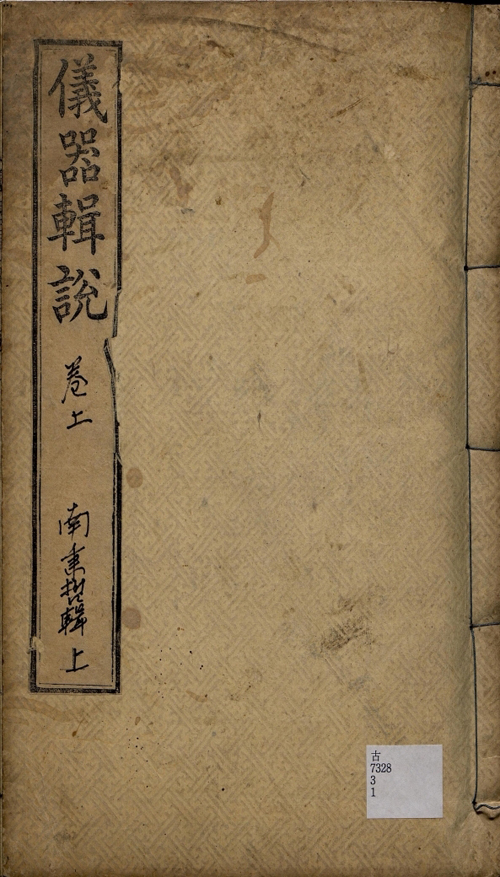 儀器輯說
卷上
南秉哲輯 上
古
7328
3
1